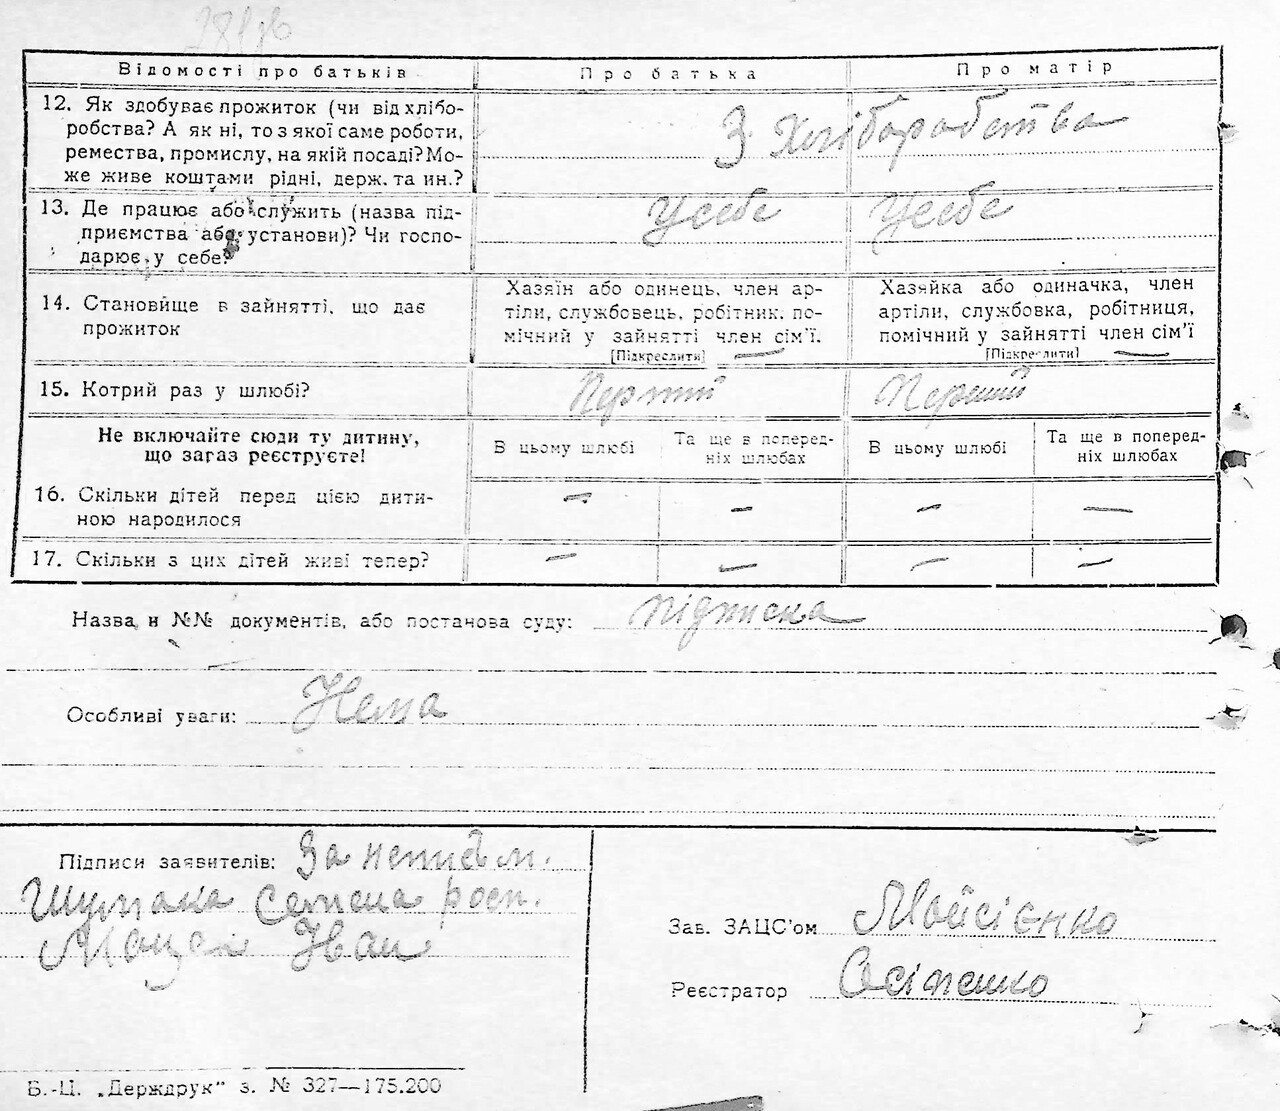 Відомості про батьків Про батька Про матір
12. Як здобуває прожиток (чи від хлібо-
робства? А як ні, то з якої саме роботи,
ремества, промислу, на якій посаді? Мо-
же живе коштами рідні, держ. та ин.?
З Хліборобства
13. Де працює або служить (назва під-
приємства або установи)? Чи госпо-
дарює у себе?
Усебе Усебе
14. Становище в зайнятті, що дає
прожиток
Хазяїн або одинець, член ар-
тіли, службовець, робітник, по-
мічний у зайнятті член сім'ї.
[Підкреслити] —
Хазяйка або одиначка, член
артіли, службовка, робітниця,
помічний у зайнятті член сім'ї
[Підкреслити] —
15. Котрий раз у шлюбі? Перший Перший
Не включайте сюди ту дитину,
що загаз реєструєте!
В цьому шлюбі
Та ще в поперед-
ніх шлюбах
В цьому шлюбі
Та ще в поперед-
ніх шлюбах
16. Скільки дітей перед цією дити-
ною народилося
— — — —
17. Скільки з цих дітей живі тепер? — — — —
Назва и №№ документів, або постанова суду: підписка
Особливі уваги: Нема
Підписи заявителів: За неписьм.
Шумака Семена росп.
Іван
Зав. ЗАЦС'ом Мойсієнко
Реєстратор Осіпенко
Б.-Ц. „Держдрук" з. № 327—175.200